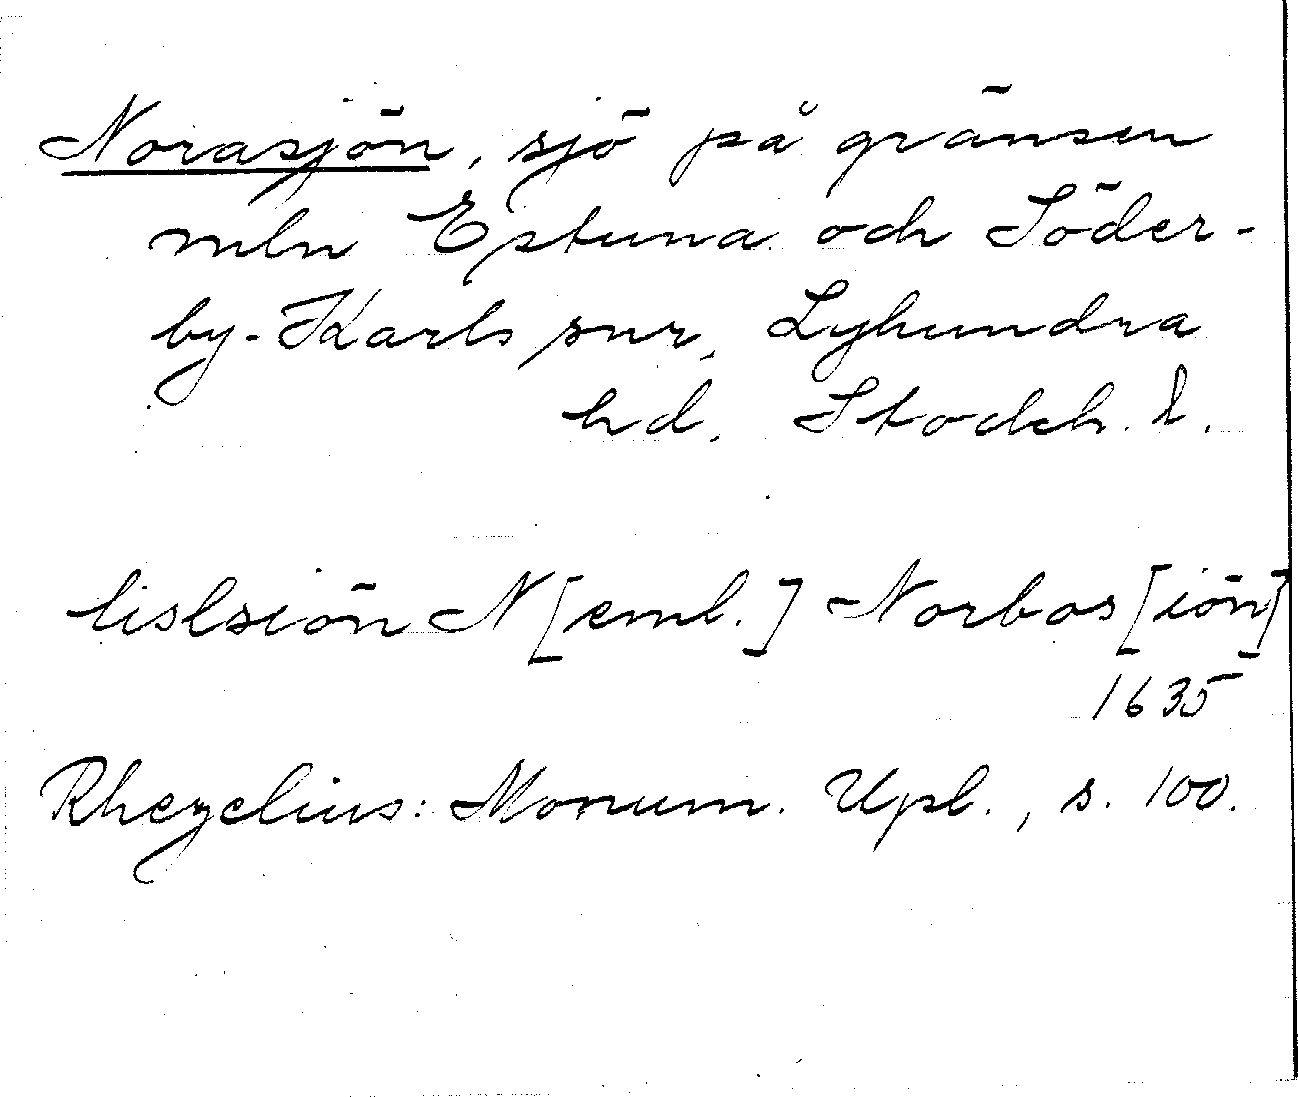 Norasjön, sjö på gränsen
mln Estuna och Söder-
by-Karls snr, Lyhundra
hd. Stockh. l.
lislsiön N[eml.] Norbos[iön]
1635
Rhezelius: Monum. Upl., s. 100.